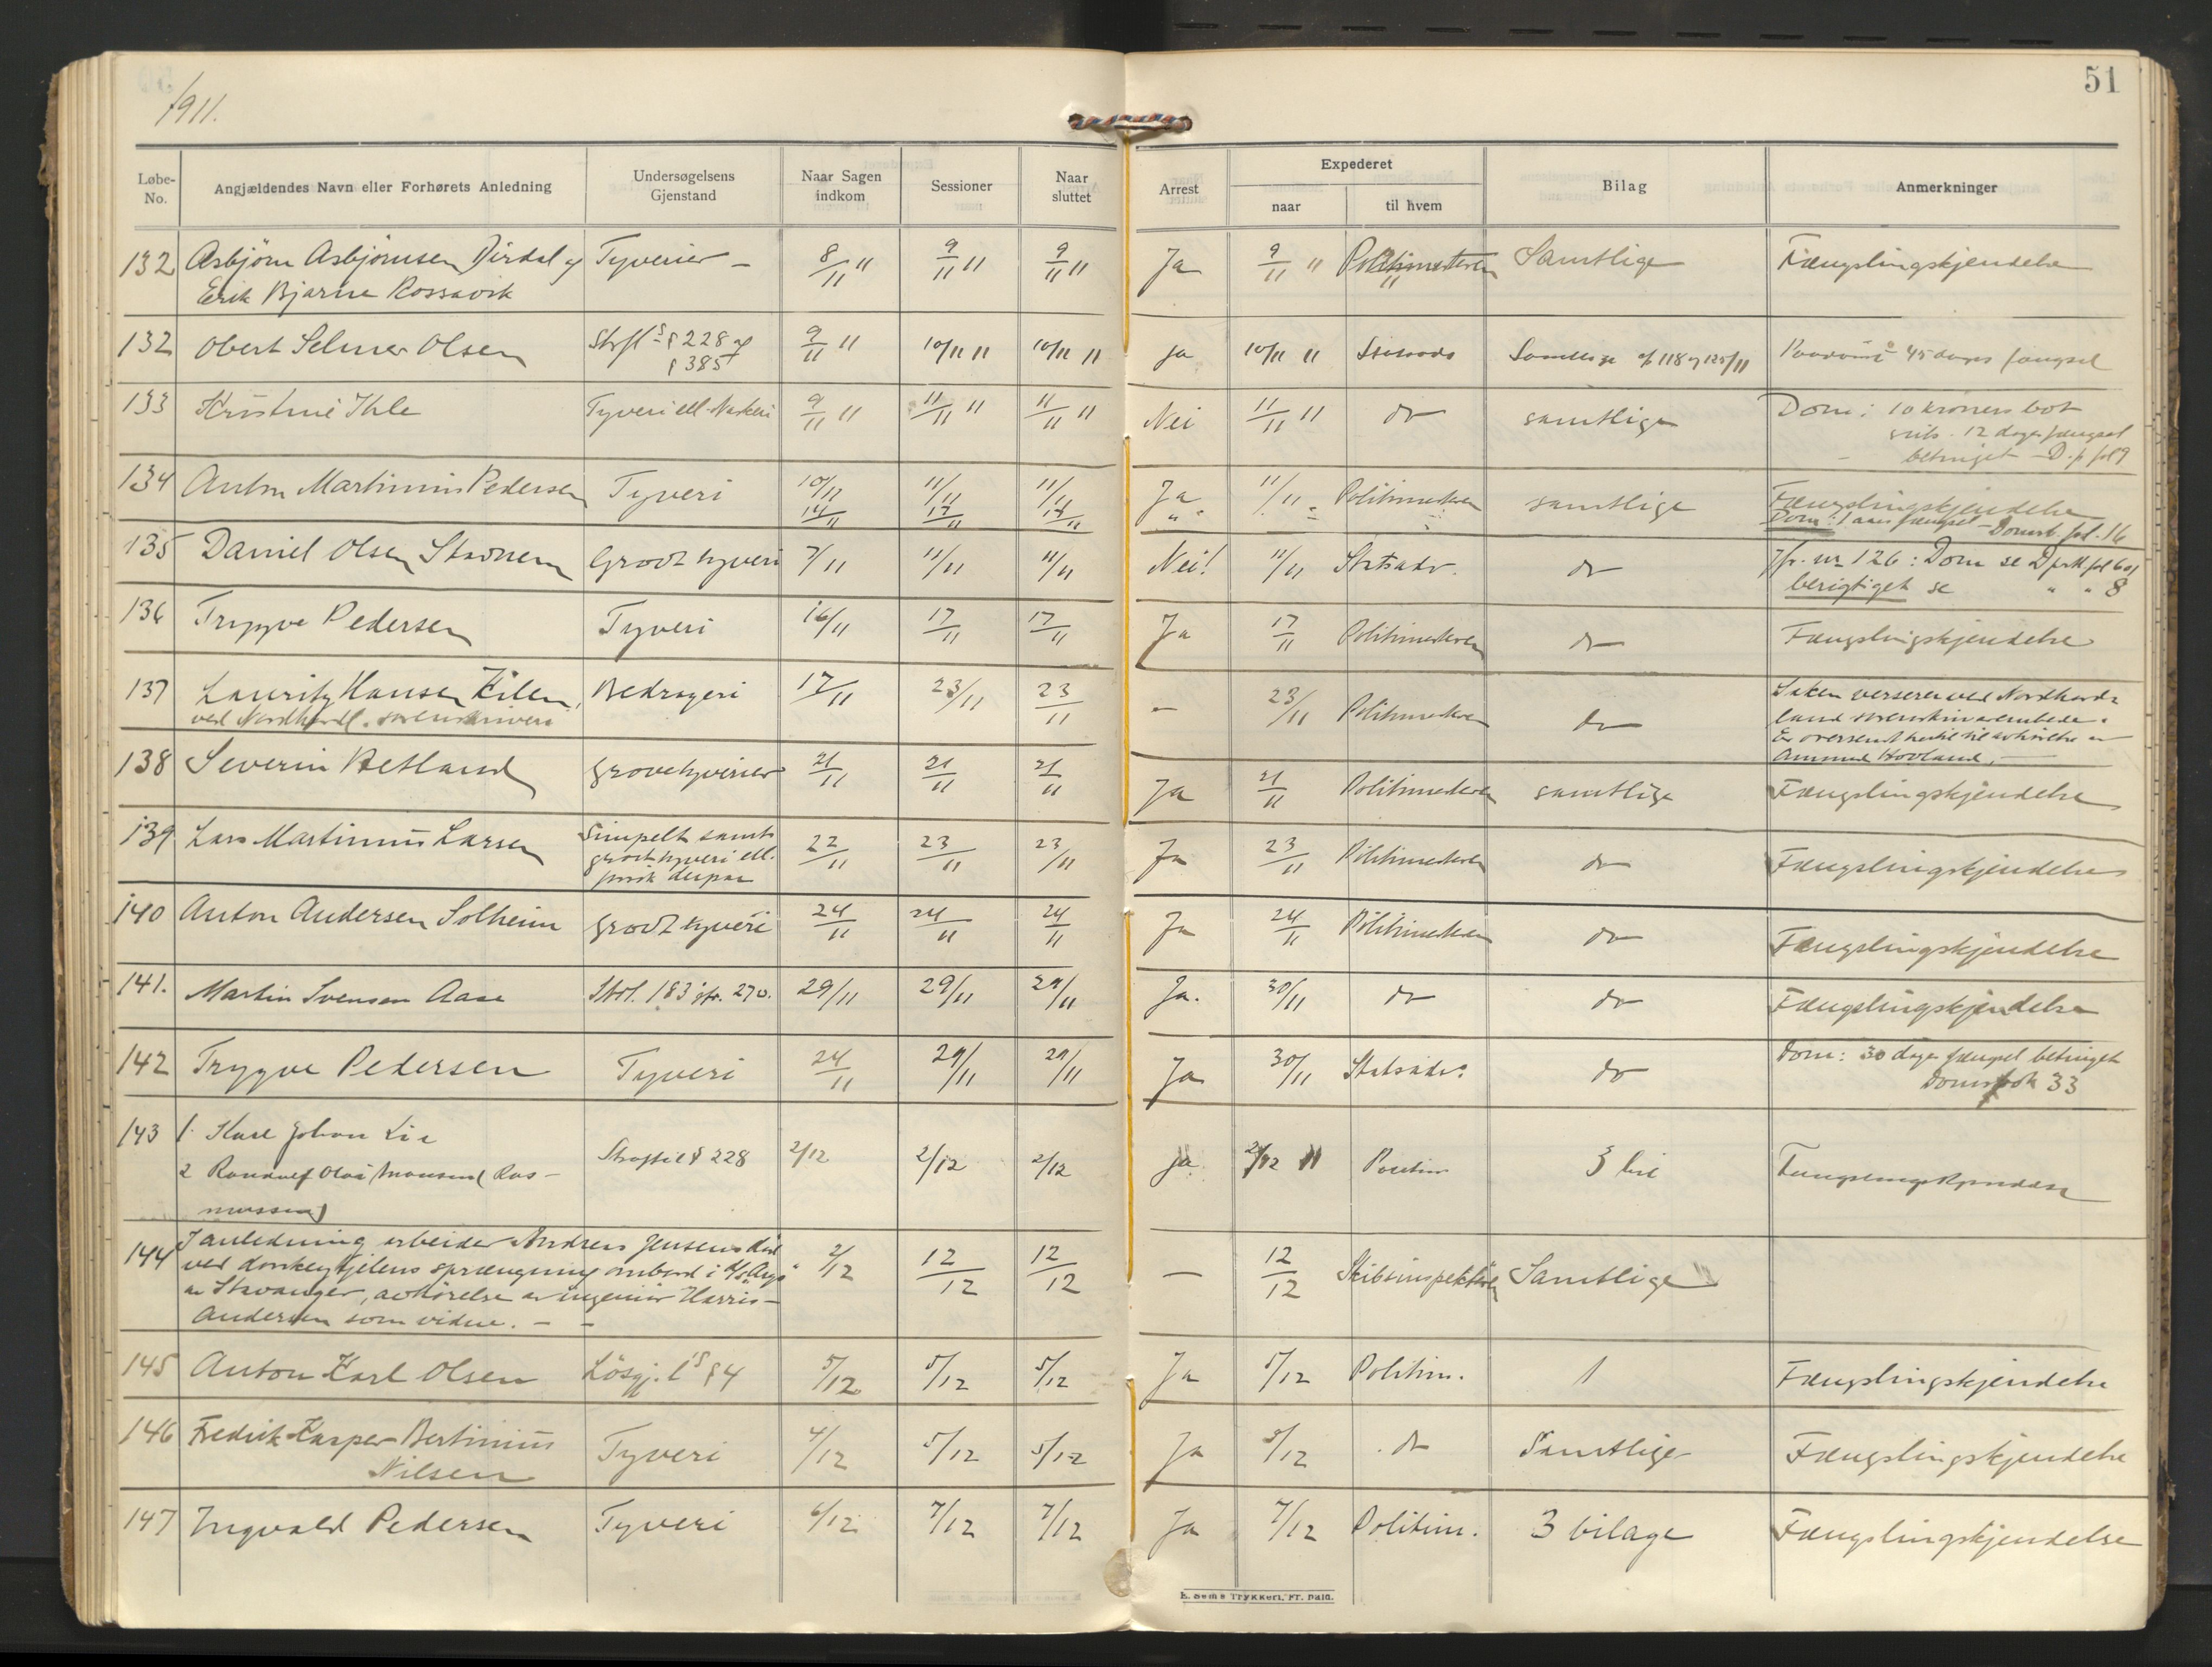 1911.
51
Løbe-No.
Angjældendes Navn eller Forhørets Anledning
Undersøgelsens Gjenstand
Naar Sagen indkom
Sessioner
Naar sluttet
Arrest
Expederet
naar
til hvem
Bilag
Anmerkninger
132 Asbjörn Asbjörnsen Dirdal og Tyverier – 8/11 " 9/11 " 9/11 " Ja 9/11 " Politimesteren Samtlige Fængslingskjendelse
Erik Bjarne Rossavik
132 Obert Selmer Olsen Strfl's § 228 og 9/11 " 10/11 11 10/11 11 ja 10/11 11 Samtlige 118 og 125/11 45 dages fængsel
§ 385
133 Kristine Ihle Tyveri ell. Naskeri 9/11 " 11/11 " 11/11 " Nei 11/11 " do samtlige Dom: 10 kroners bot
subs. 12 dages fængsel
betinget – D.p. fol 9
134 Anton Martinius Pedersen Tyveri 10/11 11/11 11/11 Ja 11/11 Politimesteren samtlige Fængslingskjendelse
14/11 17/11 " Dom: 1 aars fængsel – Domsb. fol. 16
135 Daniel Olsen Stavnem Grovt tyveri 7/11 11/11 11/11 Nei! 11/11 Statsadv. do Jfr. nr. 126: Dom se
berigtiget se " " 8
136 Trygve Pedersen Tyveri 16/11 17/11 17/11 Ja 17/11 Politimesteren do Fængslingskjendelse
137 Lauritz Hansen Eilen, Bedrageri 17/11 23/11 23/11 – 23/11 Politimesteren do Saken verserer ved Nordhord-
ved Nordhordl. sorenskriveri land sorenskriverembede.
Er oversendt hertil til avhörelse av
Ammund Hovland. –
138 Severin Retland grove tyverier 21/11 21/11 21/11 Ja 21/11 Politimesteren samtlige Fængslingskjendelse
139 Lars Martinius Larsen Simpelt samt 22/11 23/11 23/11 Ja 23/11 Politimesteren do Fængslingskjendelse
grovt tyveri ell.
forsök derpaa
140 Anton Andersen Solheim grovt tyveri 24/11 24/11 24/11 Ja 24/11 Politimesteren do Fængslingskjendelse
141. Martin Svensen Aase Strl. 183 jfr. 270. 29/11 29/11 29/11 Ja. 30/11 do do Fængslingskjendelse
142 Trygve Pedersen Tyveri 24/11 29/11 29/11 Ja 30/11 Statsadv. do Dom: 30 dage fængsel betinget
Domsbok 33
143 1. Karl Johan Lie Straffel § 228 2/12 2/12 2/12 ja 2/12 11 Politim 3 bil Fængslingskjendelse
2 Olai Monsen (Ras-
mussen)
144 I anledning arbeider Andreas Jensens död 2/12 12/12 12/12 – 12/12 Skibsinspektören Samtlige
ved donkeykjelens sprængning ombord i
av Stavanger, avhörelse av ingeniör Harris-
Andersen som vidne. – –
145 Anton Karl Olsen Lösgj. l's § 4 5/12 5/12 5/12 Ja 5/12 Politim. 1 Fængslingskjendelse
146 Fredrik Kasper Bertinius Tyveri 4/12 5/12 5/12 Ja 5/12 do Samtlige Fængslingskjendelse
Nilsen
147 Ingvald Pedersen Tyveri 6/12 7/12 7/12 Ja 7/12 Politim. 3 bilage Fængslingskjendelse